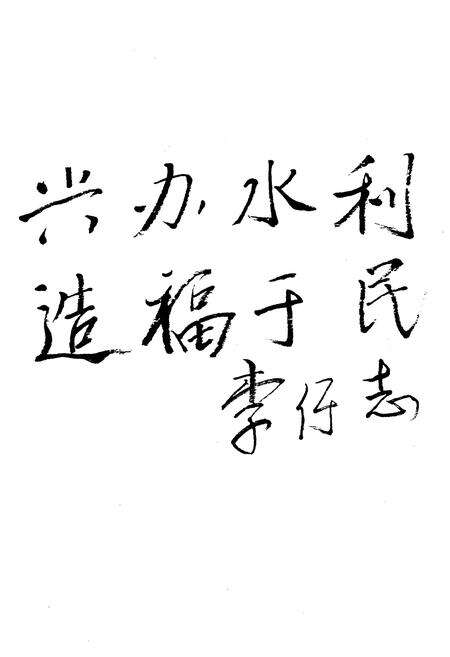 兴办水利
造福于民
李行志